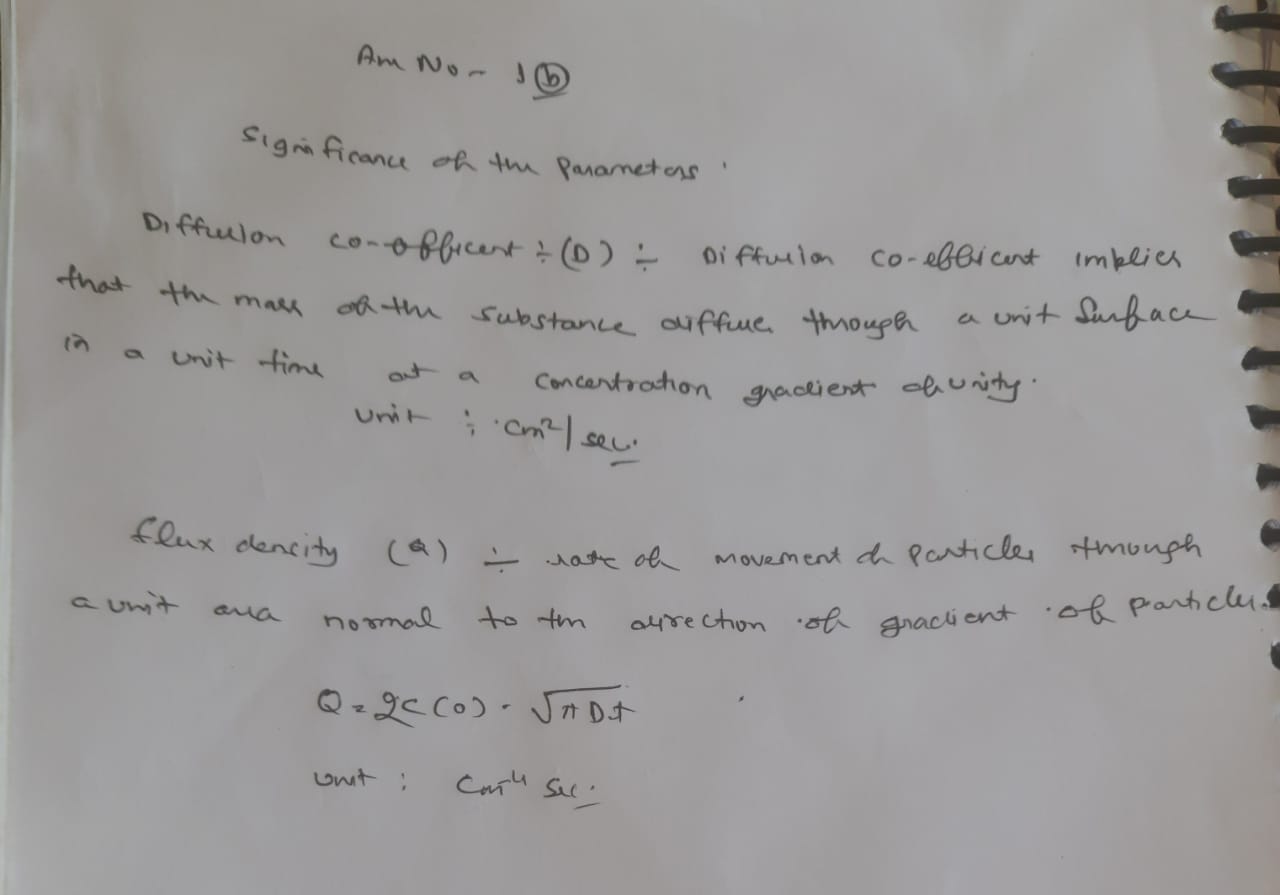 Ans No - 1 (b)
Significance of the Parameters.
Diffusion co-officent ÷ (D) ÷ Diffusion co-efficent implies
that the mass of the substance diffuse through a unit Surface
in a unit time at a concentration gradient of unity.
unit : cm²/sec.
flux dencity (Q) ÷ rate of movement of particles through
a unit area normal to the direction of gradient of particles.
Q = 2C(0) . √πDt
unit : cm⁻⁴ sec.